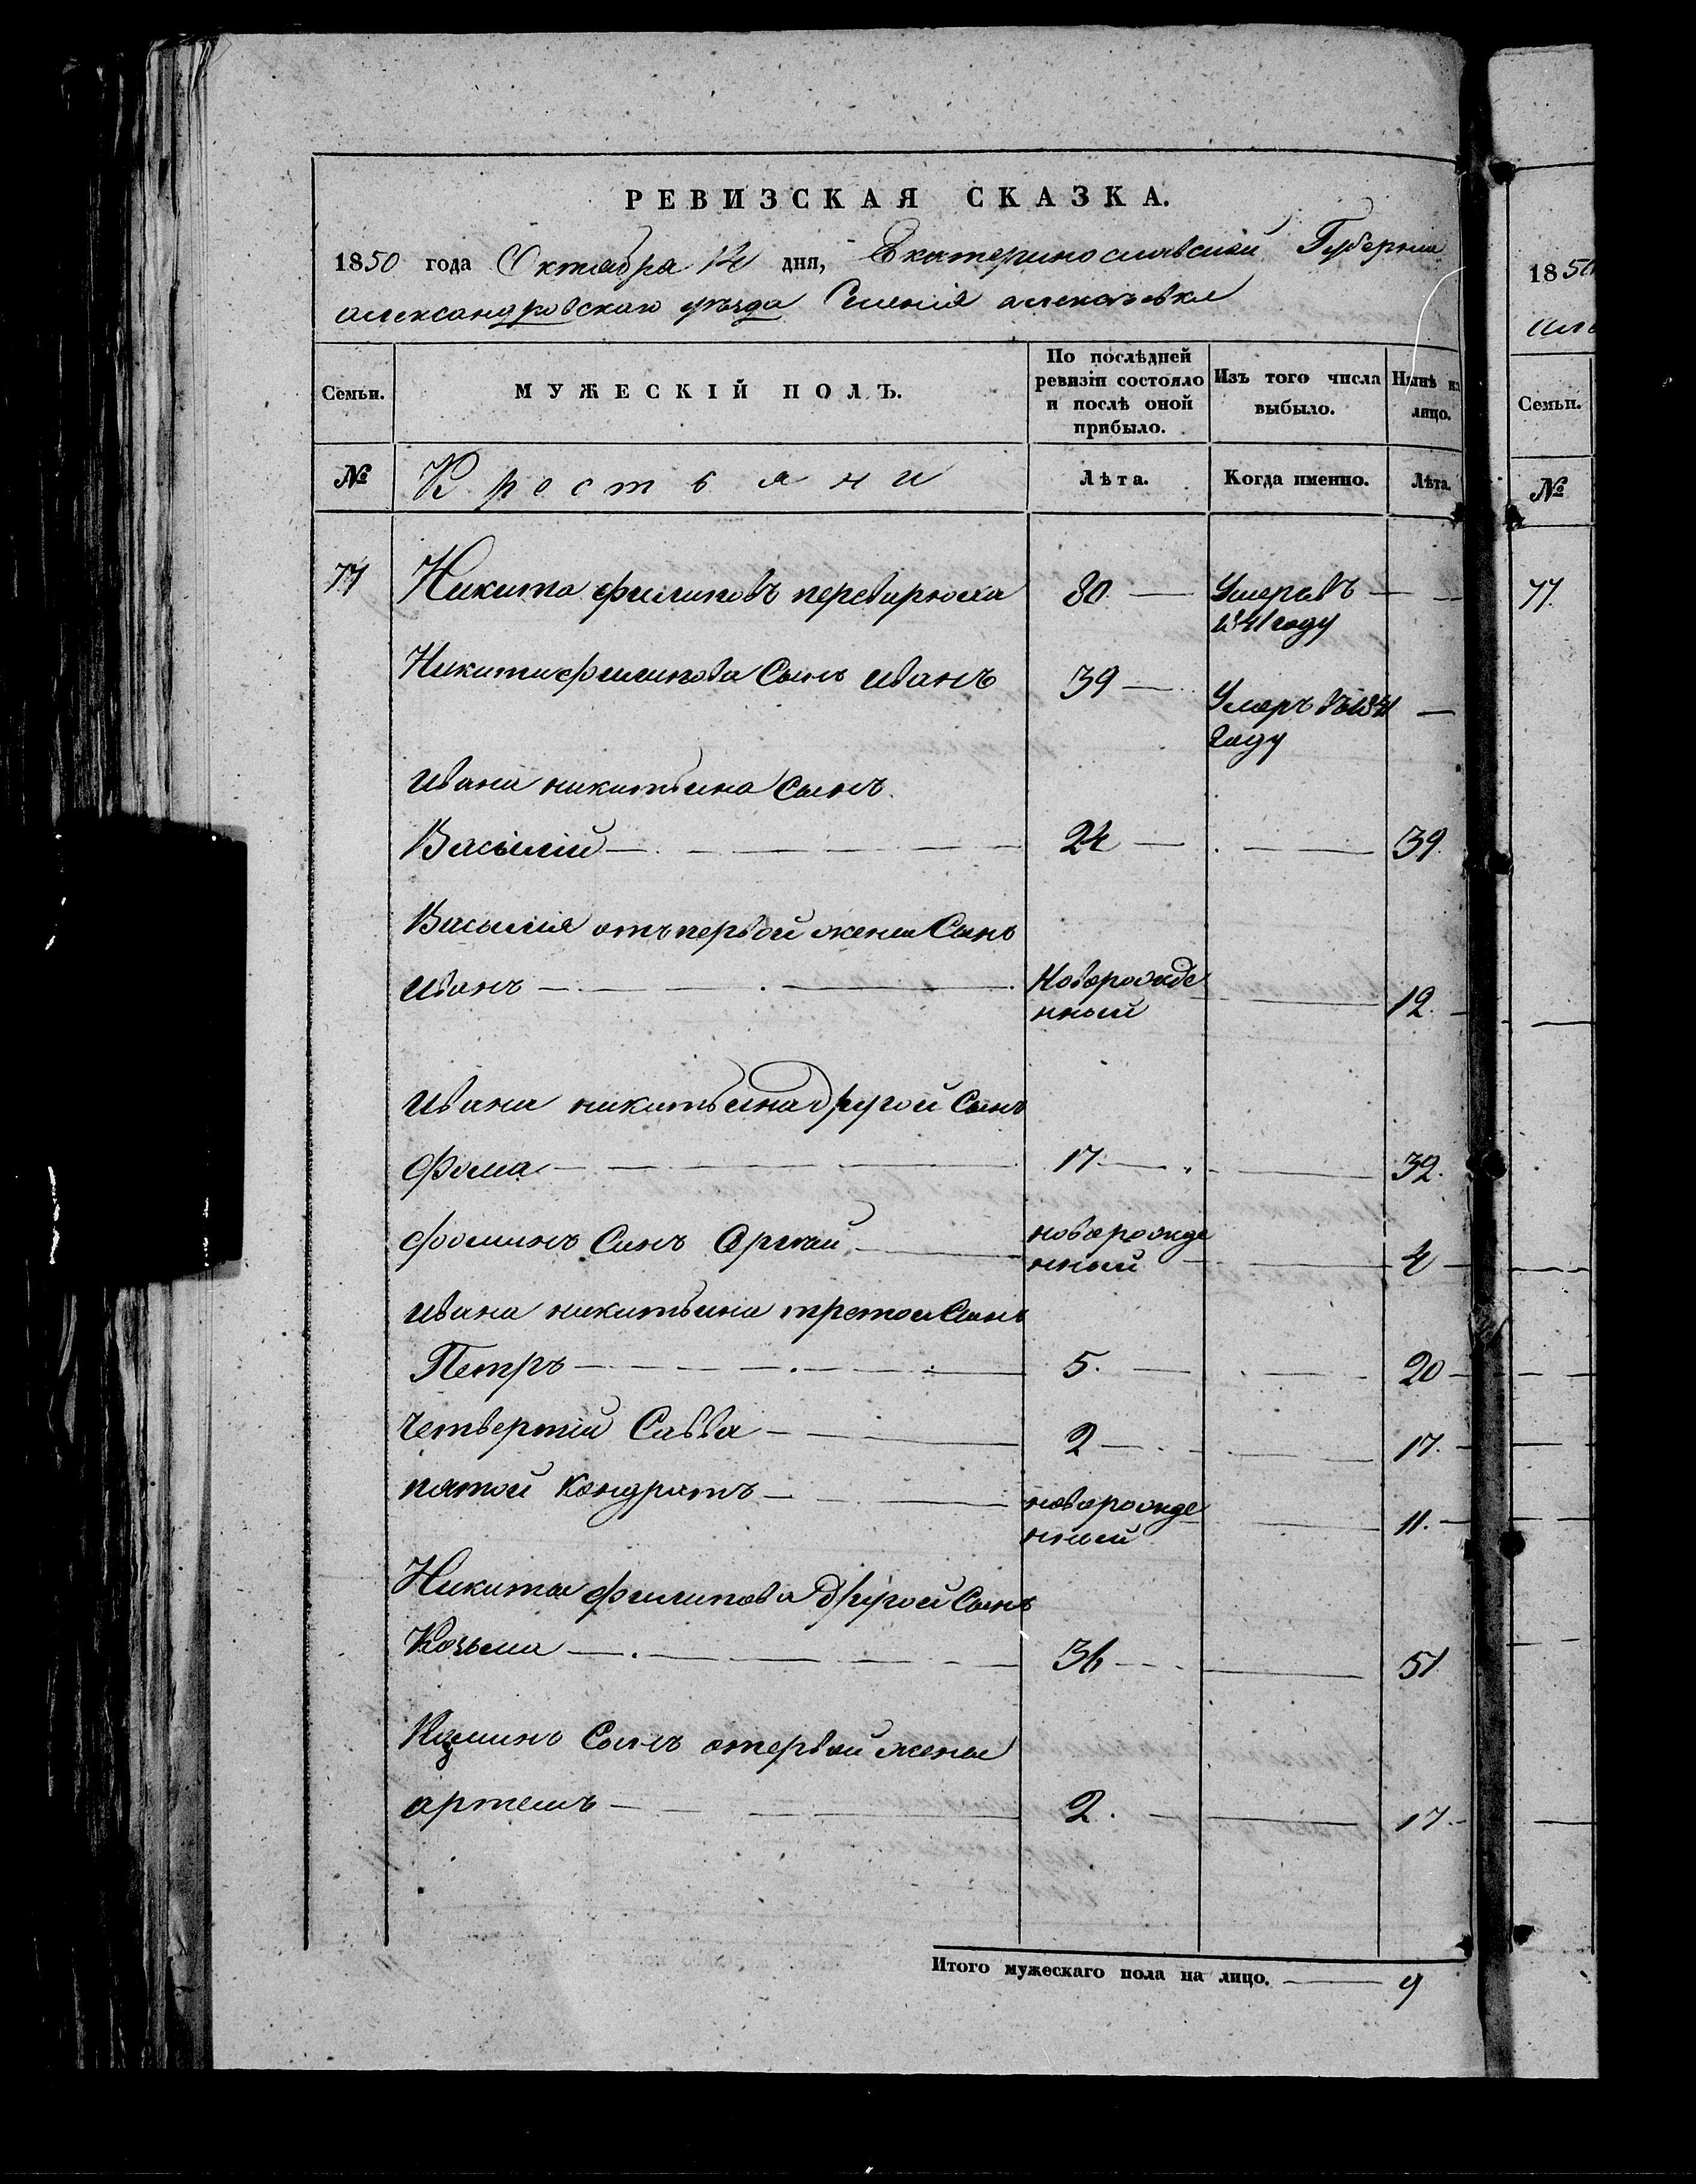 РЕВИЗСКАЯ СКАЗКА.
1850 года Октября 14 дня, Екатеринославской Губернии
александровскаго уѣзда Селенія алексѣевки
Семьи.
МУЖЕСКІЙ ПОЛЪ.
По послѣдней ревизіи состояло и послѣ оной прибыло.
Изъ того числа выбыло.
Нынѣ на лицо.
№
Крестьяни
Лѣта.
Когда именно.
Лѣта.
77 Никита филиповъ перевирюха 80 — Умеръ въ — —
1841 году
Никити филипова Сынъ иванъ 39 — Умеръ въ 1841 —
году
ивана никитьина Сынъ
Василій — 24 — — 39.
Василія отъ первой жены Сынъ
иванъ — Новорожде — 12.
нный
ивана никитьина другой Сынъ
Фома — 17 — — 32.
фоминъ Синъ — новорожде — 4
нный
ивана никитьина третои Сынъ
Петръ — 5. — — 20
Четвертій Савва — 2 — — 17.
пятой Кондратъ — новорожде — 11.
нный
Никиты филипова другой Сынъ
Козьма — 36 — — 51
Козминъ Сынъ отервой жены
артемъ — 2. — — 17
Итого мужескаго пола на лицо. — 9
1850
але
Семьи.
№
77.